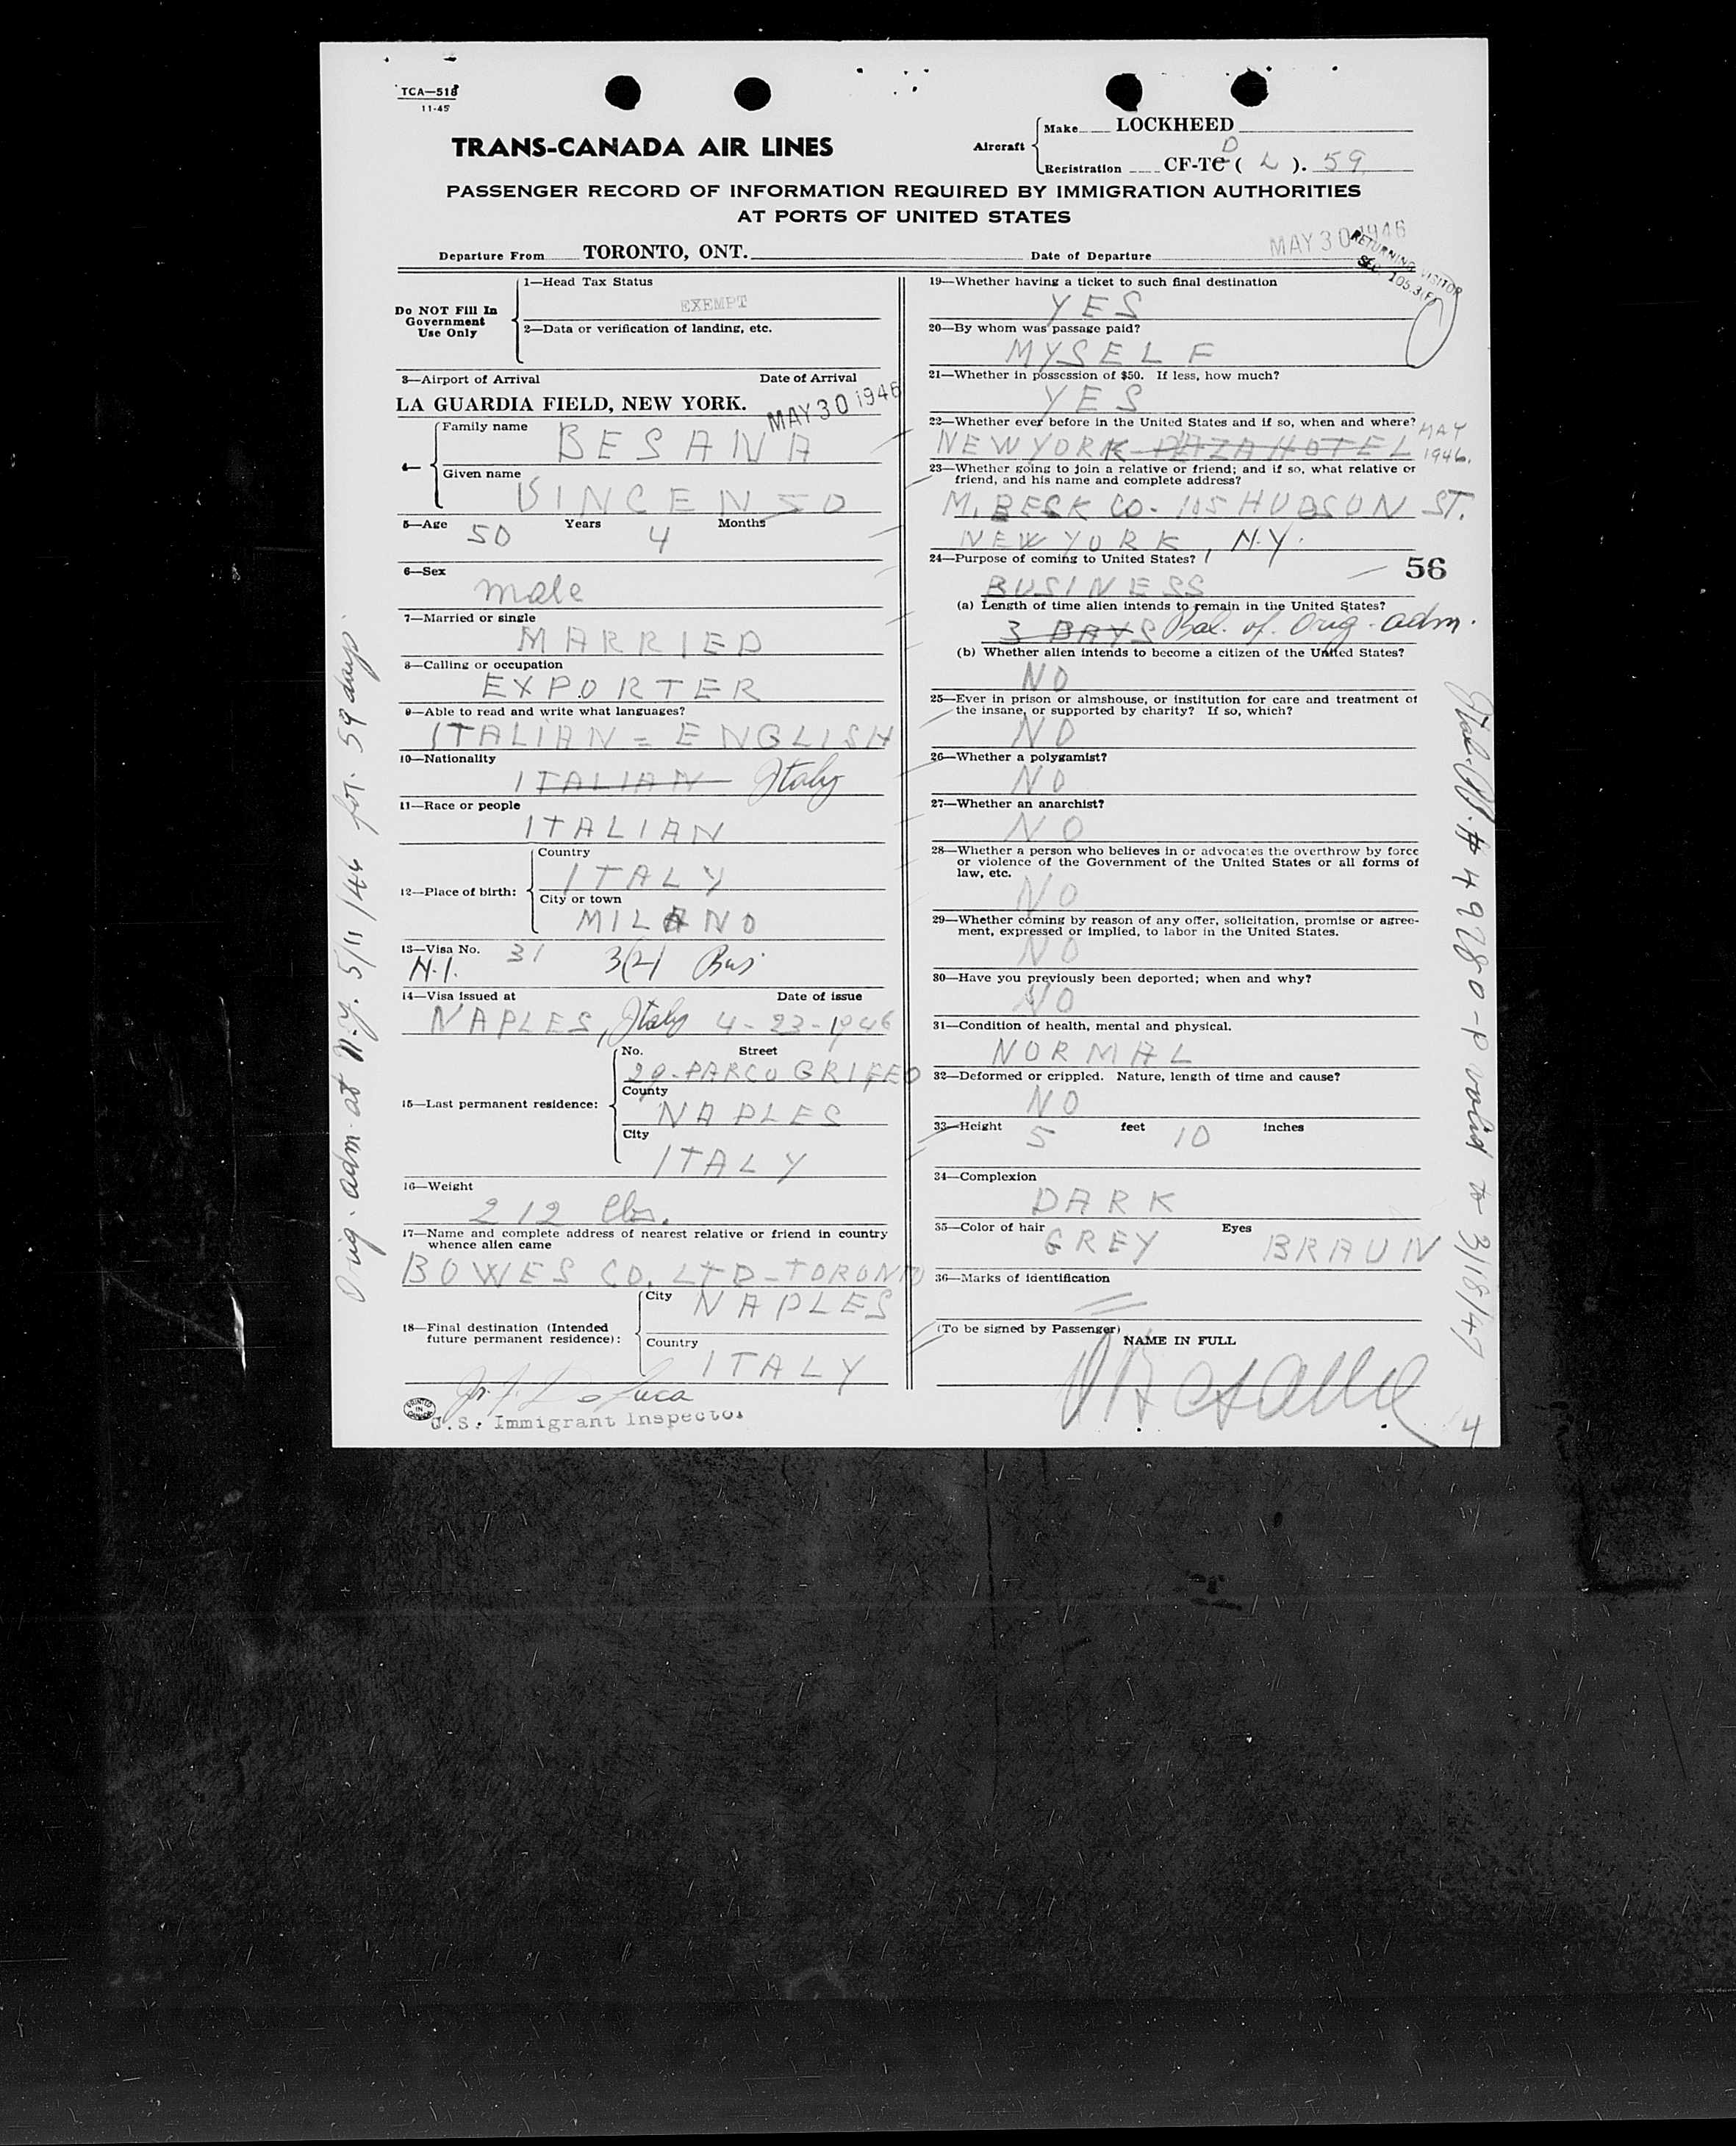 TCA—518
11-45
TRANS-CANADA AIR LINES
Aircraft
Make LOCKHEED
D
Registration CF-TC ( L ). 59
PASSENGER RECORD OF INFORMATION REQUIRED BY IMMIGRATION AUTHORITIES
AT PORTS OF UNITED STATES
Departure From TORONTO, ONT. Date of Departure MAY 30 1946
RETURNING VISITOR
SEC. 105.3(F)
Do NOT Fill In
Government
Use Only
1—Head Tax Status
EXEMPT
2—Data or verification of landing, etc.
3—Airport of Arrival Date of Arrival
LA GUARDIA FIELD, NEW YORK. MAY 30 1946
4—
Family name
BESANA
Given name
VINCENSO
5—Age 50 Years 4 Months
6—Sex
male
7—Married or single
MARRIED
8—Calling or occupation
EXPORTER
9—Able to read and write what languages?
ITALIAN = ENGLISH
10—Nationality
ITALIAN Italy
11—Race or people
ITALIAN
12—Place of birth:
Country
ITALY
City or town
MILANO
13—Visa No. 31 3(2) Bus
14—Visa issued at Date of issue
NAPLES, Italy 4-23-1946
15—Last permanent residence:
No. Street
29-PARCO GRIFEO
County
NAPLES
City
ITALY
16—Weight
212 lbs.
17—Name and complete address of nearest relative or friend in country
whence alien came
BOWES CO. LTD-TORONTO
18—Final destination (Intended
future permanent residence):
City NAPLES
Country
ITALY
U.S. Immigrant Inspector
PRINTED
IN
CANADA
19—Whether having a ticket to such final destination
YES
20—By whom was passage paid?
MYSELF
21—Whether in possession of $50. If less, how much?
YES
22—Whether ever before in the United States and if so, when and where?
NEW YORK PLAZA HOTEL MAY
1946.
23—Whether going to join a relative or friend; and if so, what relative or
friend, and his name and complete address?
M. BECK CO. 105 HUDSON ST.
NEW YORK, N.Y.
24—Purpose of coming to United States? 56
BUSINESS
(a) Length of time alien intends to remain in the United States?
3 DAYS Bal. of Orig. adm.
(b) Whether alien intends to become a citizen of the United States?
NO
25—Ever in prison or almshouse, or institution for care and treatment of
the insane, or supported by charity? If so, which?
NO
26—Whether a polygamist?
NO
27—Whether an anarchist?
NO
28—Whether a person who believes in or advocates the overthrow by force
or violence of the Government of the United States or all forms of
law, etc.
NO
29—Whether coming by reason of any offer, solicitation, promise or agree-
ment, expressed or implied, to labor in the United States.
NO
30—Have you previously been deported; when and why?
NO
31—Condition of health, mental and physical.
NORMAL
32—Deformed or crippled. Nature, length of time and cause?
NO
33—Height 5 feet 10 inches
34—Complexion
DARK
35—Color of hair GREY Eyes BRAUN
36—Marks of identification
(To be signed by Passenger)
NAME IN FULL
4
Orig. adm. at N.Y. 5/11/46 for 59 days.
# 4928-0-P valid to 3/18/47